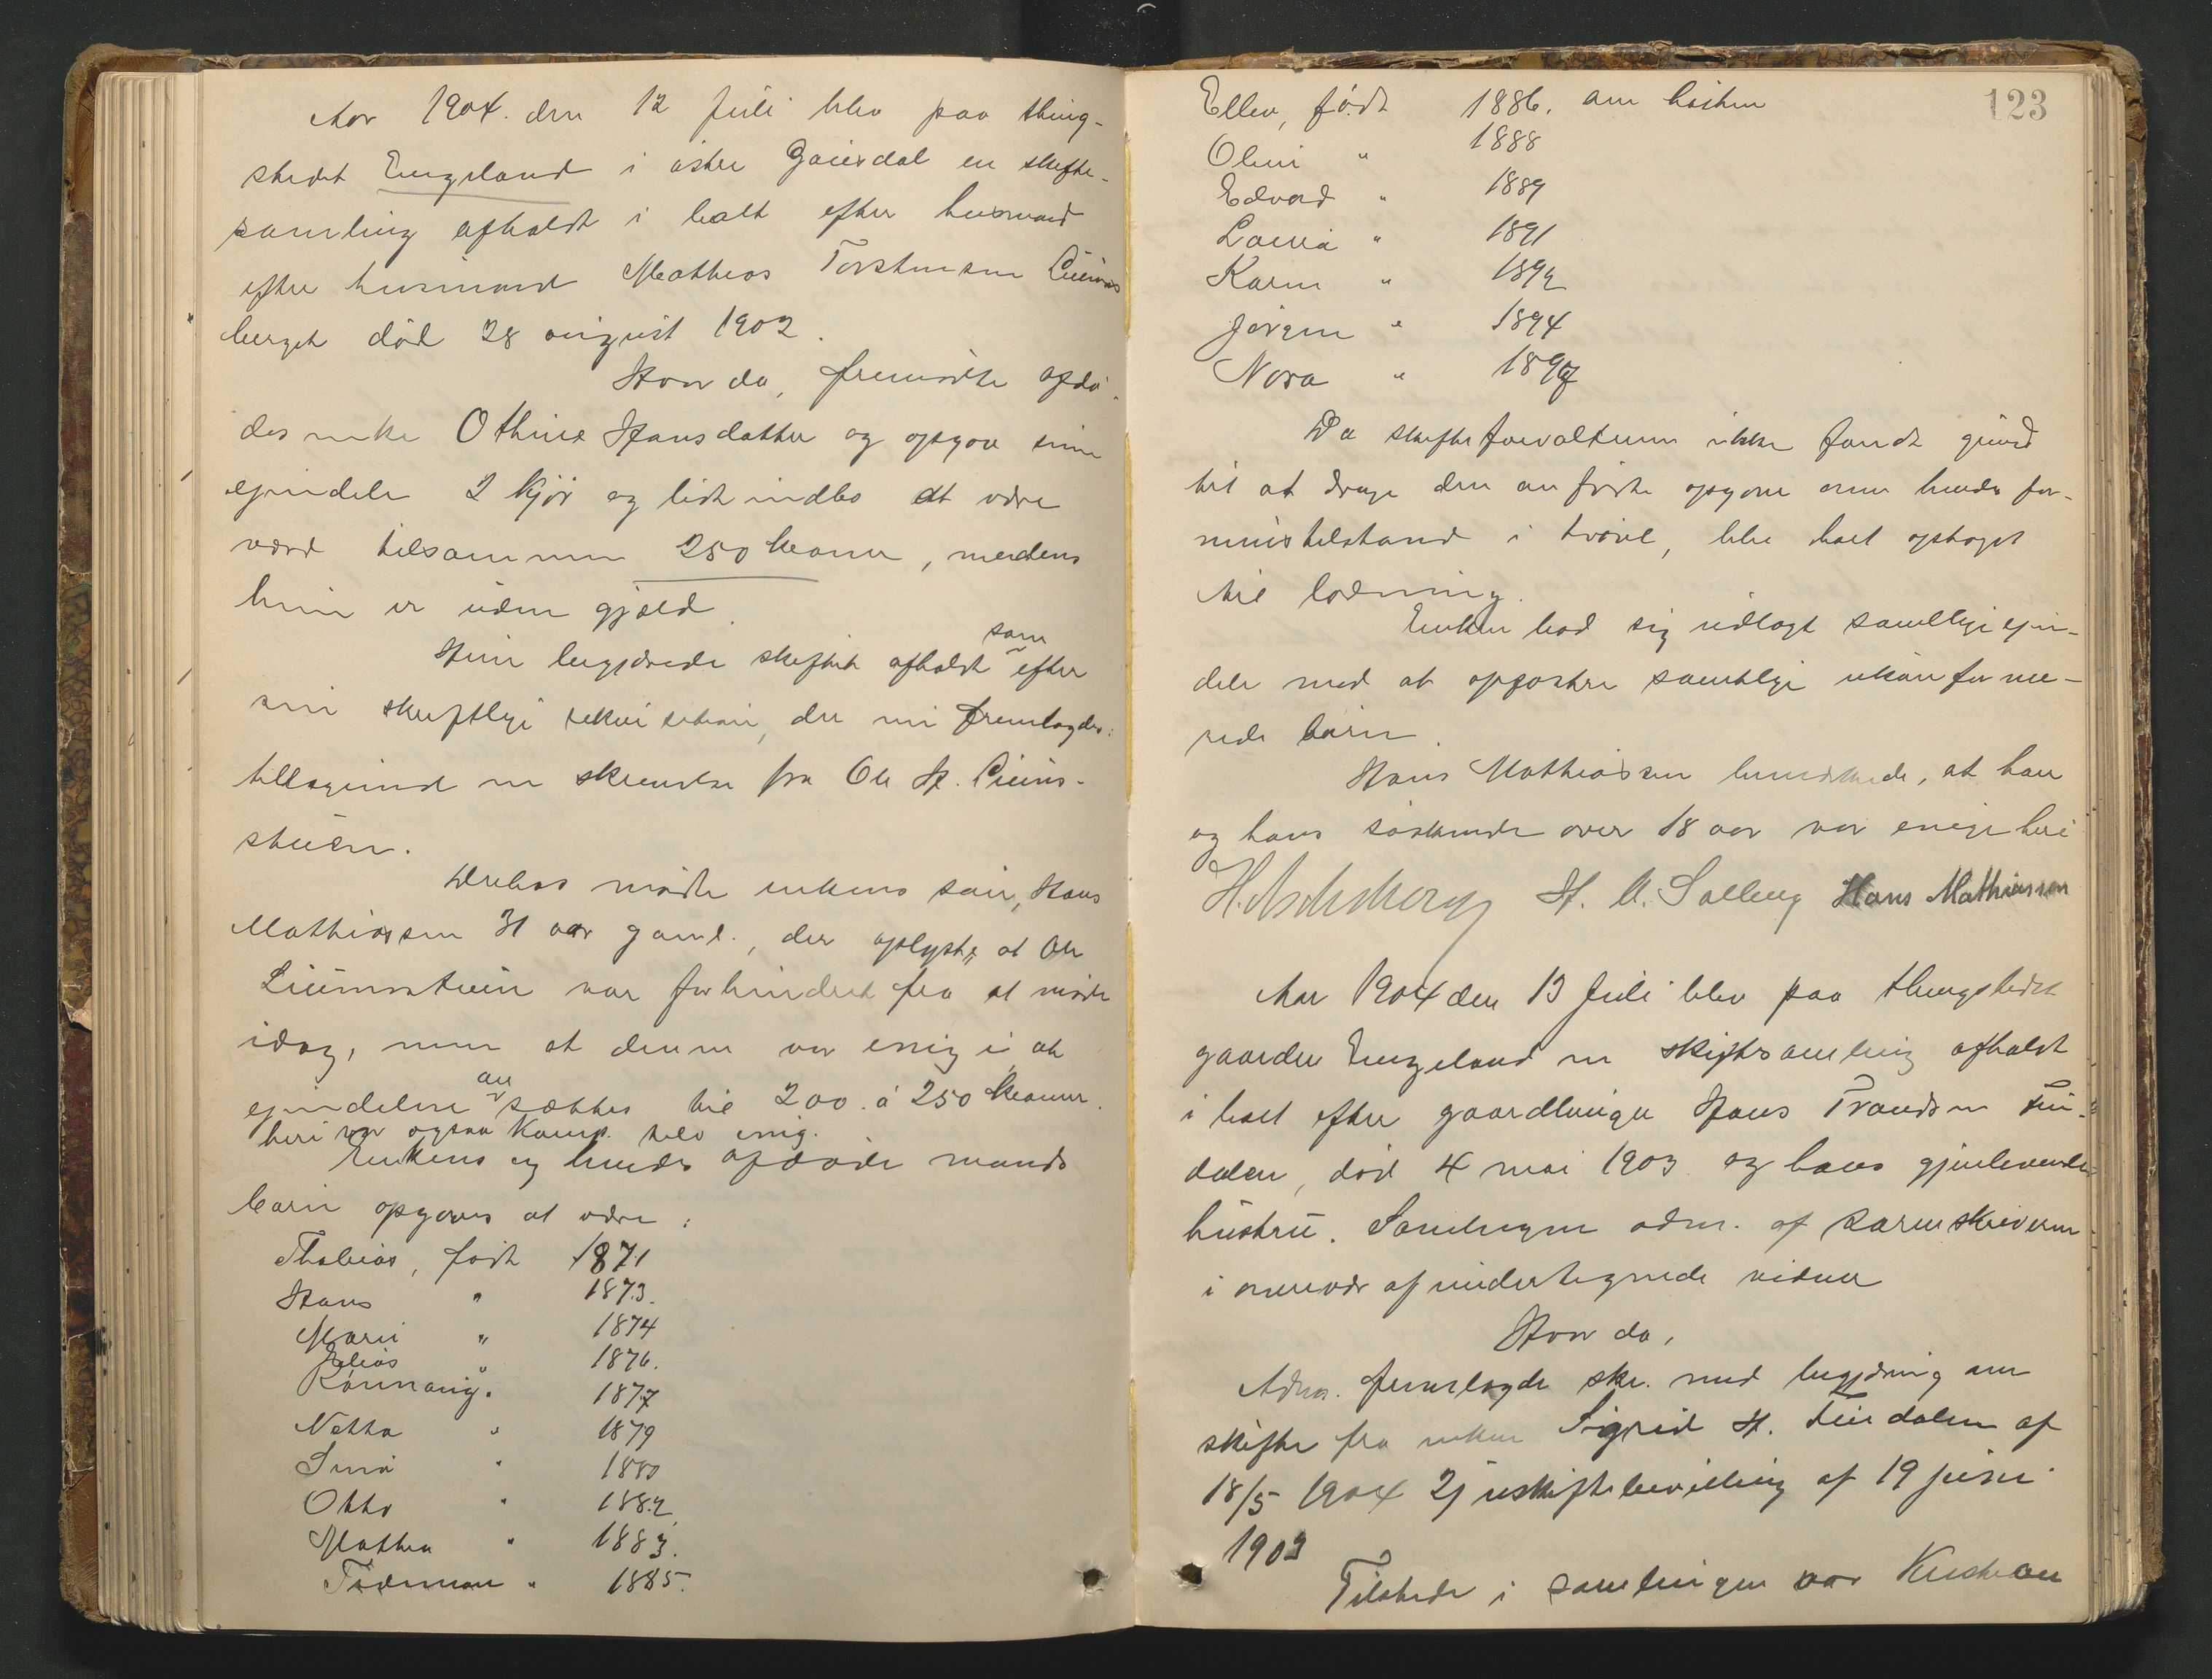 Aar 1904. den 12 Juli blev paa thing-
stedet Engeland i østre Gausdal en skifte-
samling afholdt i boet efter husmand
efter husmand Mathias Torstensen
berget død 28 august 1902.
Hvor da, fremmødte afdø-
des enke Othine Hansdatter og opgav sine
ejendele 2 kjør og lidt indbo at være
værd tilsammen 250 kroner, medens
hun er uden gjæld.
Hun begjærede skiftet afholdt som efter
sin skriftlige rekvisition, der nu fremlagdes:
tilligemed en skrivelse fra Ole H.
stuen.
Derhos mødte enkens søn, Hans
Mathiassen 31 aar gaml., der oplyste, at Ole
var forhindret fra at møde
idag, men at denne var enig i at
ejendelene ansættes til 200 à 250 kroner.
heri var ogsaa Komp. selv enig.
Enkens og hendes afdøde mands
børn opgaves at være:
Thobias, født 1871
Hans " 1873.
Mari " 1874
Elias " 1876.
Rønnaug " 1877
Netta " 1879
" 1880
Otto " 1882
Mathea " 1883.
" 1885.
123
Ellen, født 1886. om høsten
Olui " 1888
Edvard " 1889
Laura " 1891
Karen " 1892
Jørgen " 1894
Nora " 1897
Da skifteforvalteren ikke fandt grund
til at drage den anførte opgave over hendes for-
muestilstand i tvivl, blev boet optaget
til lodning.
Enken bad sig udlagt samtlige ejen-
dele mod at opfostre samtlige ukonfirme-
rede børn.
Hans Mathiassen bemærkede, at han
og hans søskende over 18 aar var enige heri
H. A. Salberg Hans Mathiassen
Aar 1904 den 13 Juli blev paa thingstedet
gaarden Engeland en skiftesamling afholdt
i boet efter gaardbruger Hans Trondsen
dalen, død 4 mai 1903 og hans gjenlevende
hustru. Samlingen adm. af sorenskriveren
i overvær af undertegnede vidner
Hvor da,
Adm. fremlagde skr. med begjæring om
skifte fra enken Sigrid H. af
18/5 1904 2) uskiftebevilling af 19 juni
1903
Tilstede i samlingen var Kristian